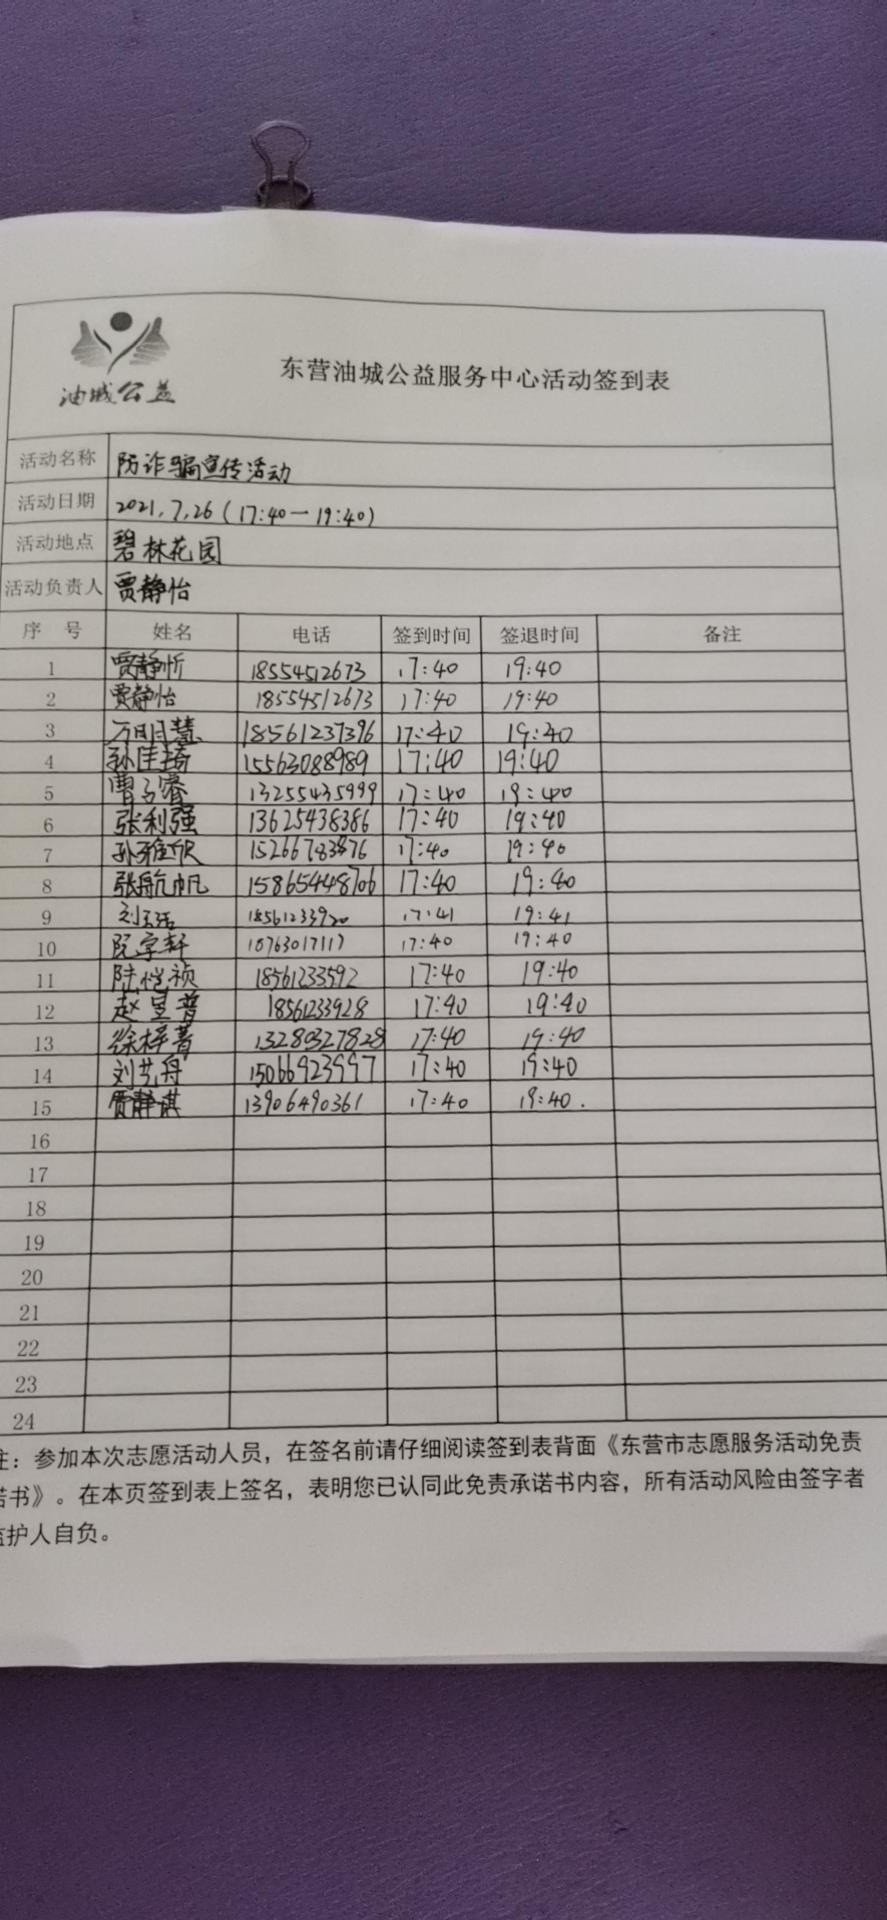 油城公益
东营油城公益服务中心活动签到表
活动名称 防诈骗宣传活动
活动日期 2021.7.26(17:40—19:40)
活动地点 碧林花园
活动负责人 贾静怡
序 号 姓名 电话 签到时间 签退时间 备注
1 贾静忻 18554512673 17:40 19:40
2 贾静怡 18554512673 17:40 19:40
3 万明慧 18561237396 17:40 19:40
4 孙佳琦 15563088989 17:40 19:40
5 曹子睿 13255435999 17:40 19:40
6 张利强 13625438386 17:40 19:40
7 孙雅欣 15266783876 17:40 19:40
8 张航帆 15865448706 17:40 19:40
9 刘 18561233920 17:41 19:41
10 阮宇轩 18763017117 17:40 19:40
11 陆恺祯 18561233592 17:40 19:40
12 赵昱普 18561233928 17:40 19:40
13 徐梓菁 13280327828 17:40 19:40
14 刘艺舟 15066923997 17:40 19:40
15 贾静琪 13906490361 17:40 19:40.
16
17
18
19
20
21
22
23
24
注：参加本次志愿活动人员，在签名前请仔细阅读签到表背面《东营市志愿服务活动免责
诺书》。在本页签到表上签名，表明您已认同此免责承诺书内容，所有活动风险由签字者
监护人自负。